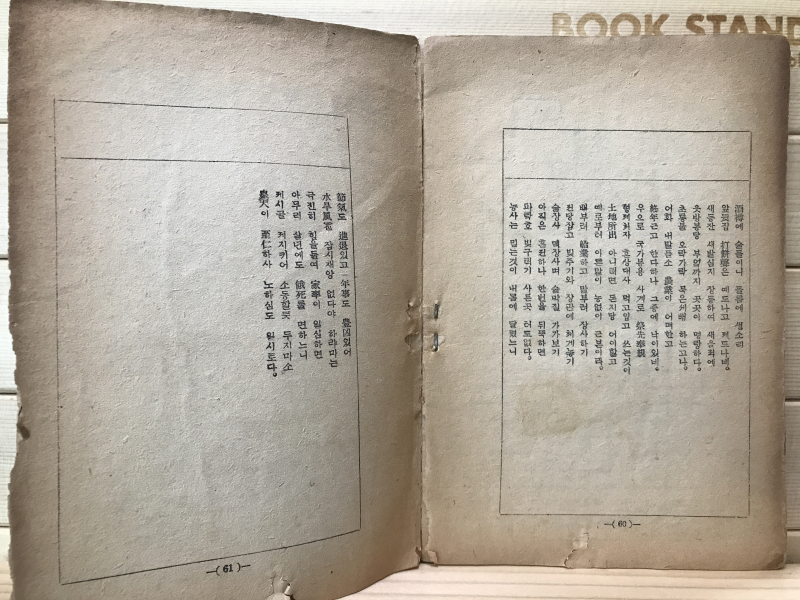 BOOK STAND
酒樽에 술들이니 돌틈에 샘소리
앞뒷집 打餠聲은 예도나고 제도나네.
새등잔 새발심지 장등하여 새올때에
웃방봉당 부엌까지 곳곳이 명랑하다.
초롱불 오락가락 묵은세배 하는고나.
어화 내말듣소 農業이 어떠한고
終年근고 한다하나 그중에 낙이있네.
우으로 국가봉용 사계로 祭先奉親
형제처자 혼상대사 먹고입고 쓰는것이
土地所出 아니러면 돈지당 어이할고
예로부터 이른말이 농업이 근본이라.
배부려 船業하고 말부려 장사하기
전당잡고 빚주기와 장판에 체계놓기
술장사 떡장사며 술막질 가가보기
아직은 흔전하나 한번을 뒤뚝하면
파락호 빚구러기 사든곳 터도없다.
농사는 믿는것이 내몸에 달렸느니
—(60)—
節氣도 進退있고 年事도 豊凶있어
水旱風雹 잠시재앙 없다야 하랴마는
극진히 힘을들여 家率이 일심하면
아무리 살년에도 餓死를 면하느니
제시골 제지키어 소동할뜻 두지마소
皇天이 至仁하사 노하심도 일시로다.
—(61)—